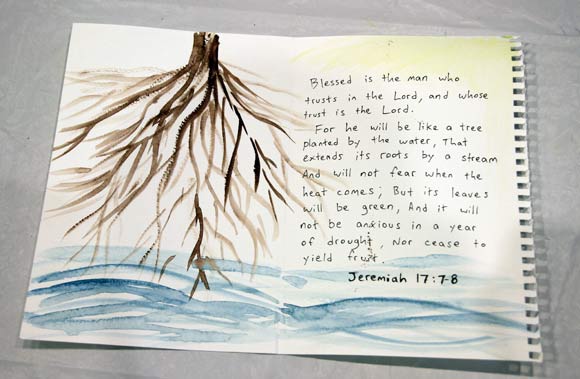 Blessed is the man who
trusts in the Lord, and whose
trust is the Lord.
For he will be like a tree
planted by the water, That
extends its roots by a stream
And will not fear when the
heat comes; But its leaves
will be green, And it will
not be anxious in a year
of drought, Nor cease to
yield fruit.
Jeremiah 17:7-8